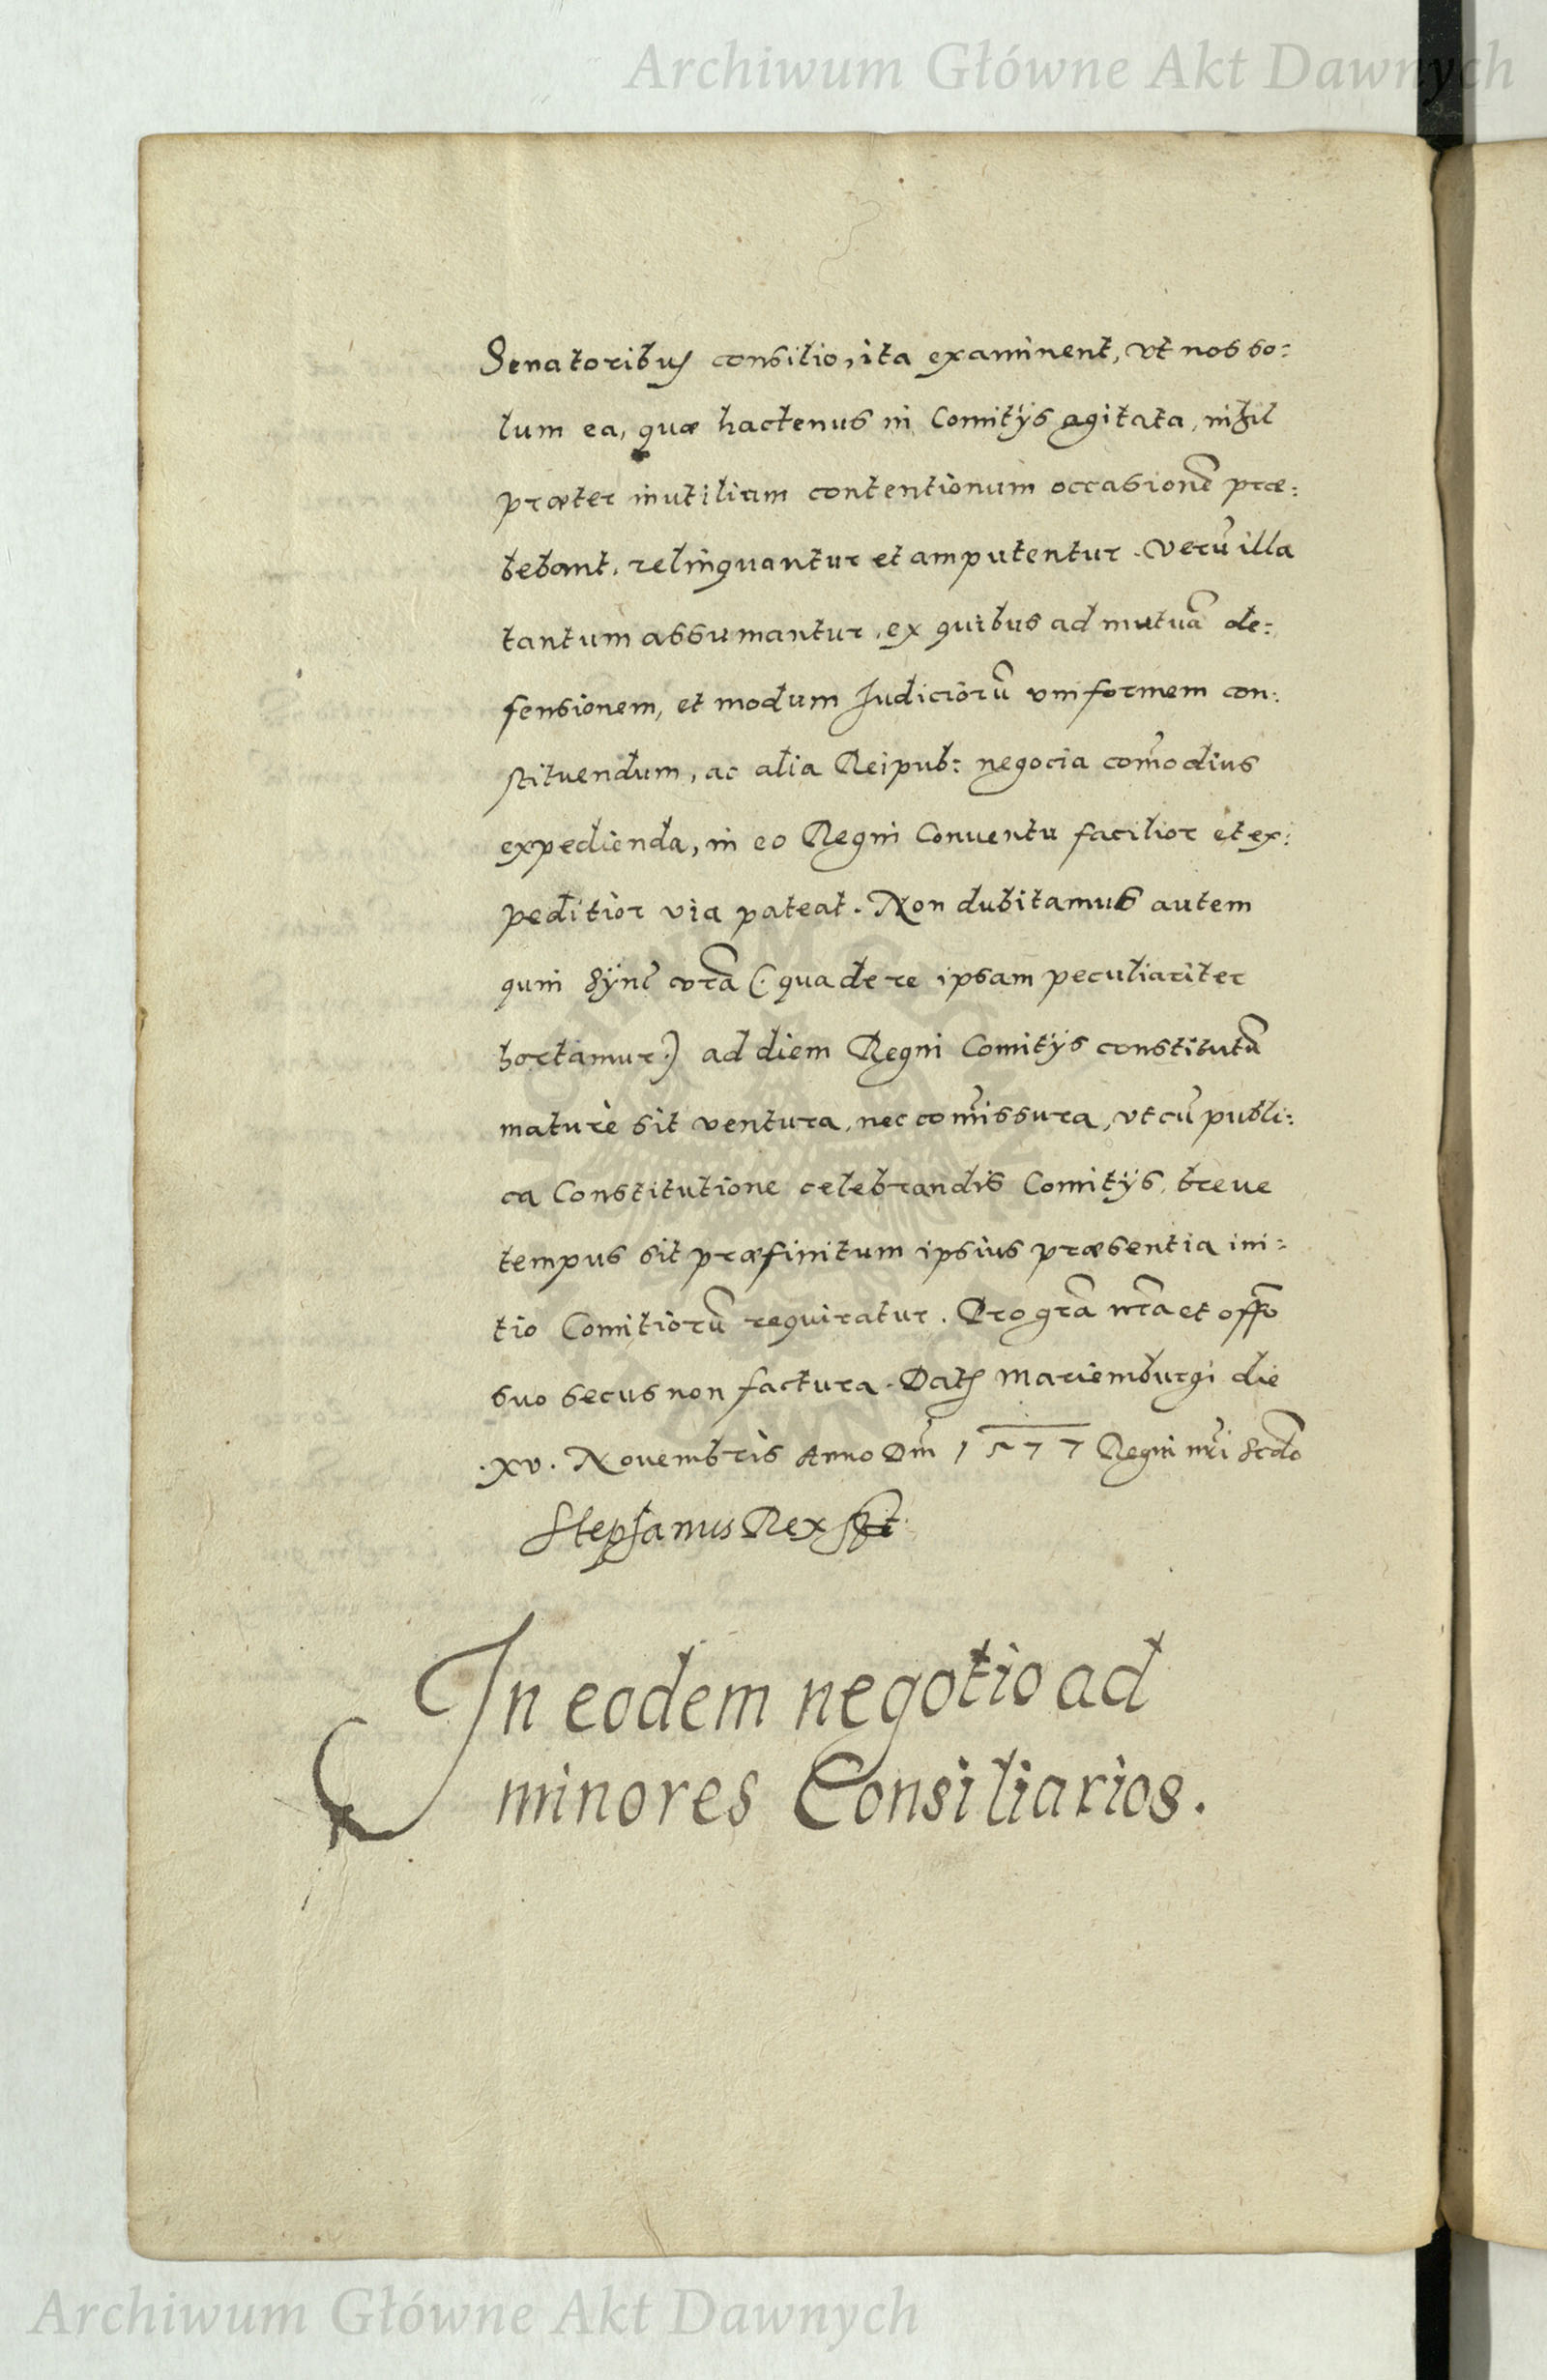 Archiwum Główne Akt Dawnych
Senatoribus consilio, ita examinent, vt nos so:
lum ea, quæ hactenus in Comitÿs agitata, nihil
præter inutilium contentionum occasionẽ præ:
bebant, relinquantur et amputentur. Verũ illa
tantum assumantur, ex quibus ad mutuã de:
fensionem, et modum Judiciorũ vniformem con:
stituendum, ac alia Reipub: negocia com̃odius
expedienda, in eo Regni Conuentu facilior et ex:
peditior via pateat. Non dubitamus autem
quin Sÿnc̃ vrã (: qua de re ipsam peculiariter
hortamur:) ad diem Regni Comitÿs constitutã
mature sit ventura, nec com̃issura, vt cũ publi:
ca Constitutione celebrandis Comitÿs, breue
tempus sit præfinitum ipsius præsentia ini:
tio Comitiorũ requiratur. Pro grã nrã et offo
suo secus non factura. Datȝ Mariemburgi die
.XV. Novembris Anno Dnĩ 1577 Regni nr̃i Scdo
Stephanus Rex sst
In eodem negotio ad
minores Consiliarios.
Archiwum Główne Akt Dawnych